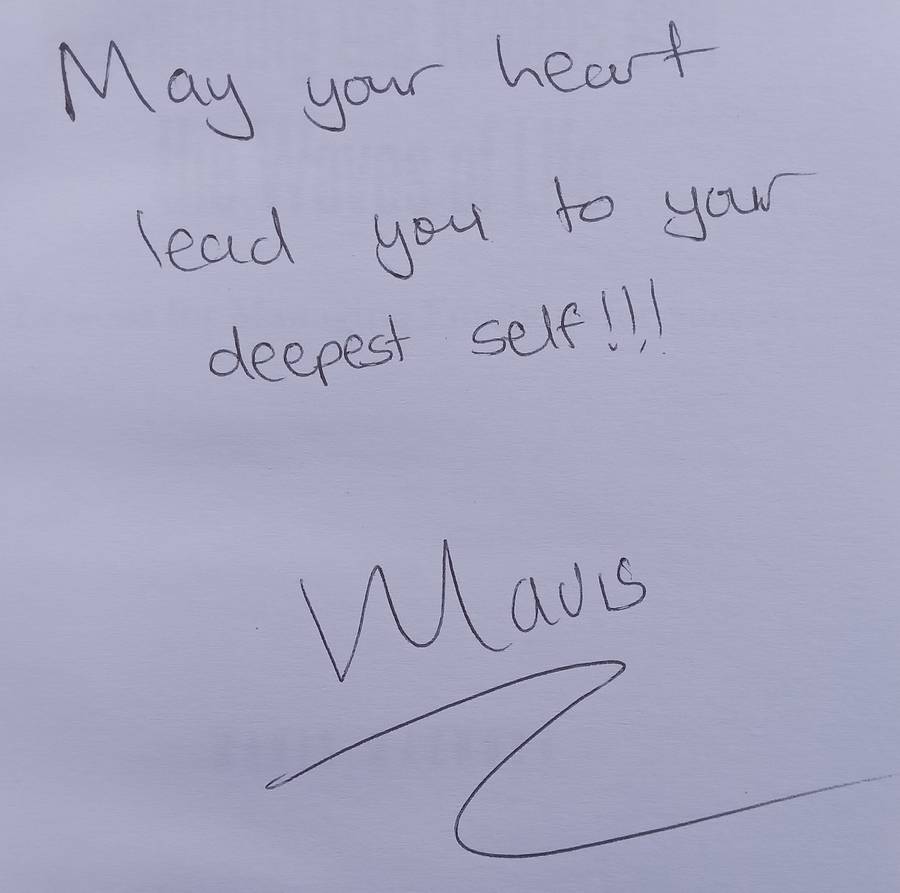 May your heart
lead you to your
deepest self!!!
Mavis